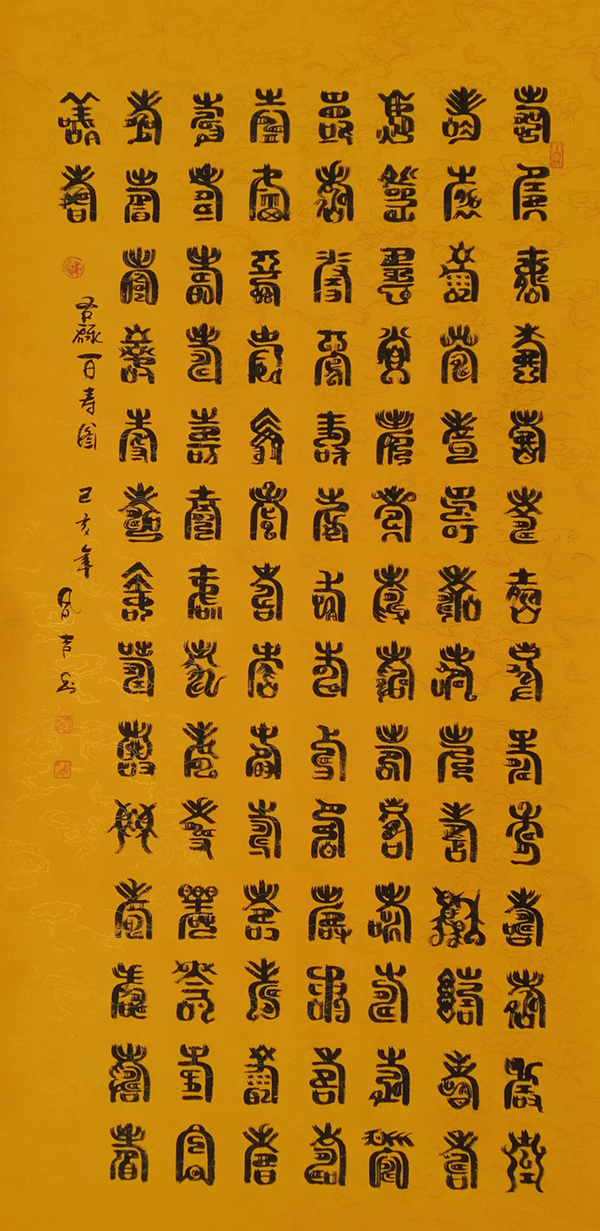 壽壽壽壽壽壽壽壽壽壽壽壽壽壽
壽壽壽壽壽壽壽壽壽壽壽壽壽壽
壽壽壽壽壽壽壽壽壽壽壽壽壽壽
壽壽壽壽壽壽壽壽壽壽壽壽壽壽
壽壽壽壽壽壽壽壽壽壽壽壽壽壽
壽壽壽壽壽壽壽壽壽壽壽壽壽壽
壽壽壽壽壽壽壽壽壽壽壽壽壽壽
壽壽
百寿图 己亥年